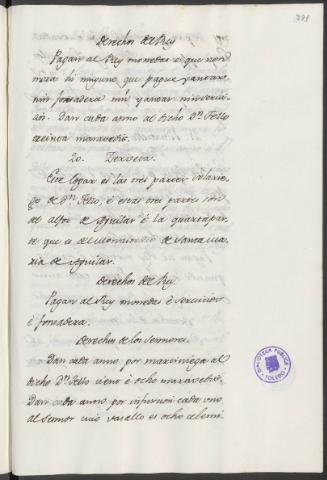 Derechos del Rey
Pagan al Rey monedas é que non
hi ninguno que pague yantares
nin fonsadera nin yantar nin servi
Dan cada anno al dicho Dn. Tello
treinta maravedis.
20. Dervesa.
Este logar es las tres partes solarie-
go de Dn. Tello, é estas tres partes son
del alfoz de Aguilar é la quarta par-
te que es del Monasterio de Santa Ma-
ria de Aguilar.
Derechos del Rey.
Pagan al Rey monedas é servicios
é fonsadera.
Derechos de los Sennores.
Dan cada anno por marciniega al
dicho Dn. Tello ciento é ocho maravedis.
Dan cada anno por infurcion cada uno
al Sennor cuio vasallo es ocho celemi.
BIBLIOTECA PUBLICA
TOLEDO